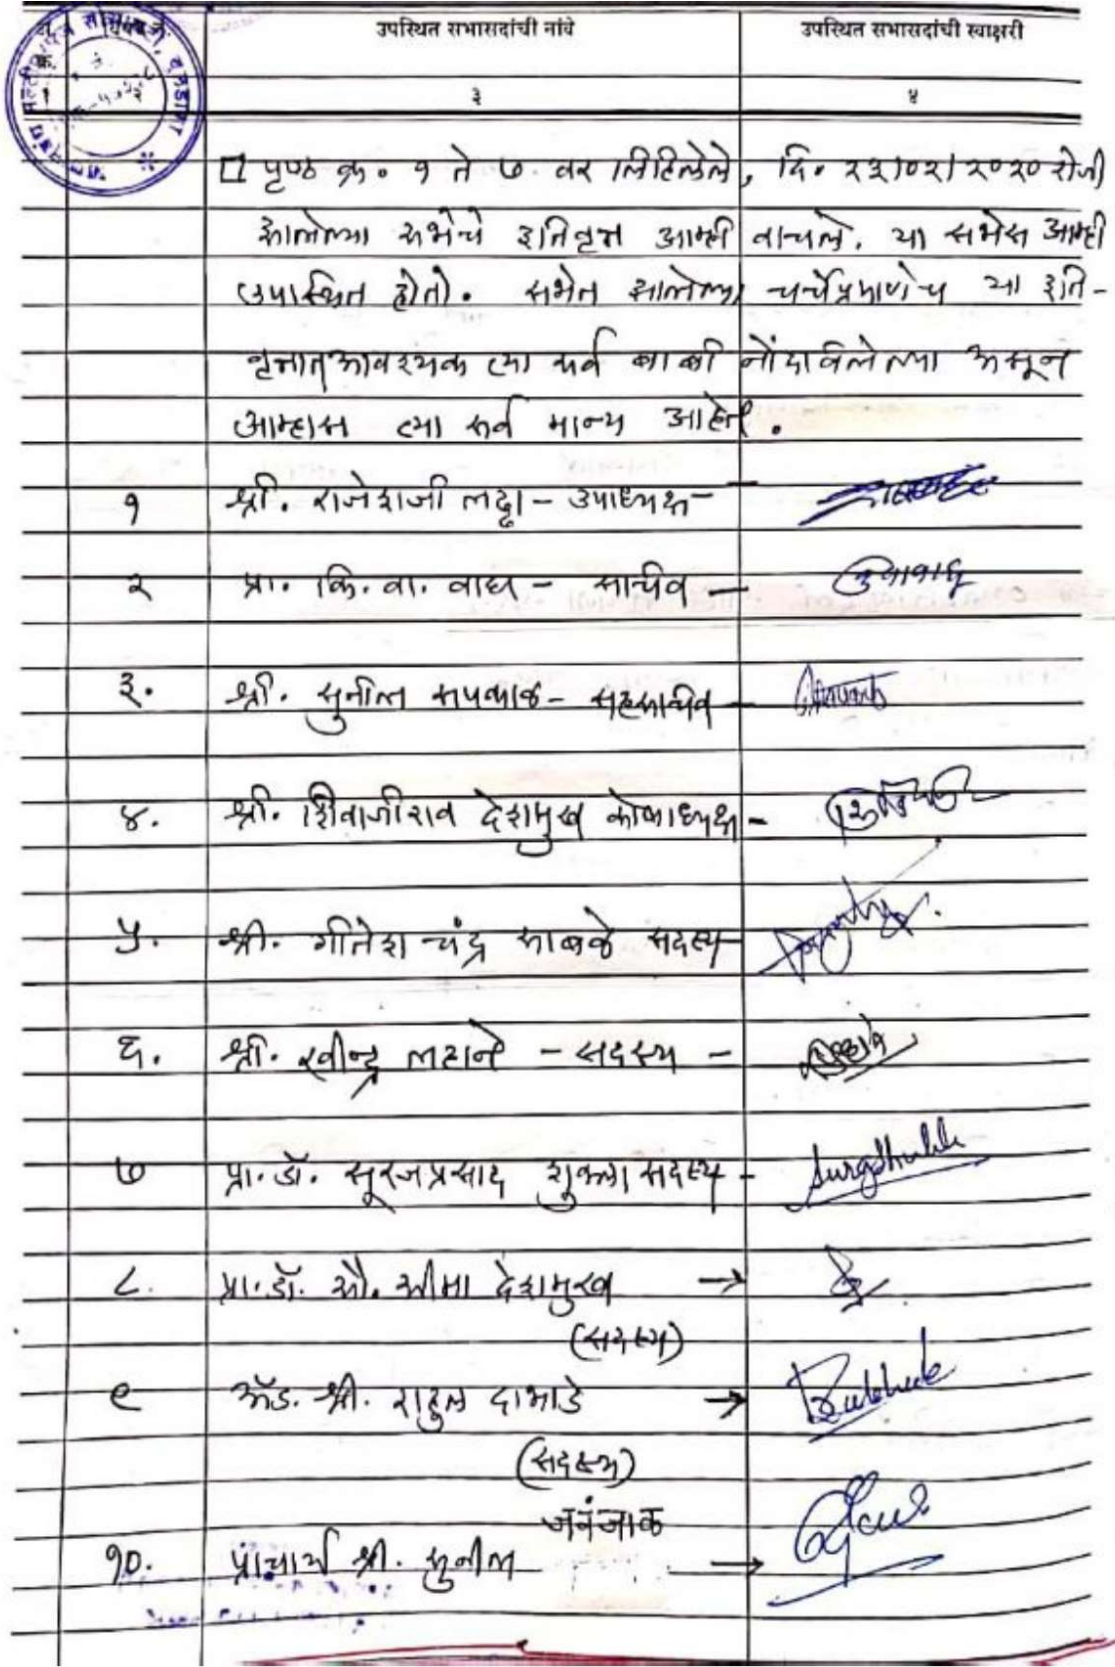 उपस्थित सभासदांची नांवे
उपस्थित सभासदांची स्वाक्षरी
क्र.
१ २ ३ ४
पृष्ठ क्र. १ ते ७ वर लिहिलेले, दि. २३/०२/२०२० रोजी
झालेल्या सभेचे इतिवृत्त आम्ही वाचले. या सभेस आम्ही
उपास्थित होतो. सभेत झालेल्या चर्चेप्रमाणेच या इति-
वृत्तात आवश्यक त्या सर्व बाबी नोंदविलेल्या असून
आम्हास त्या सर्व मान्य आहेत.
१ श्री. राजेशजी लढ्ढा - उपाध्यक्ष -
२ प्रा. कि. वा. वाघ - सचिव -
३. श्री. सुनील सपकाळ - सहसचिव -
४. श्री. शिवाजीराव देशमुख कोषाध्यक्ष -
५. श्री. गीतेश चंद्र साबळे सदस्य
६. श्री. रवीन्द्र लहाने - सदस्य -
७ प्रा. डॉ. सूरजप्रसाद शुक्ला सदस्य -
८. प्रा. डॉ. सौ. सीमा देशमुख →
(सदस्य)
९ अ‍ॅड. श्री. राहुल दाभाडे →
(सदस्य)
जवंजाळ
१०. प्राचार्य श्री. सुनील →